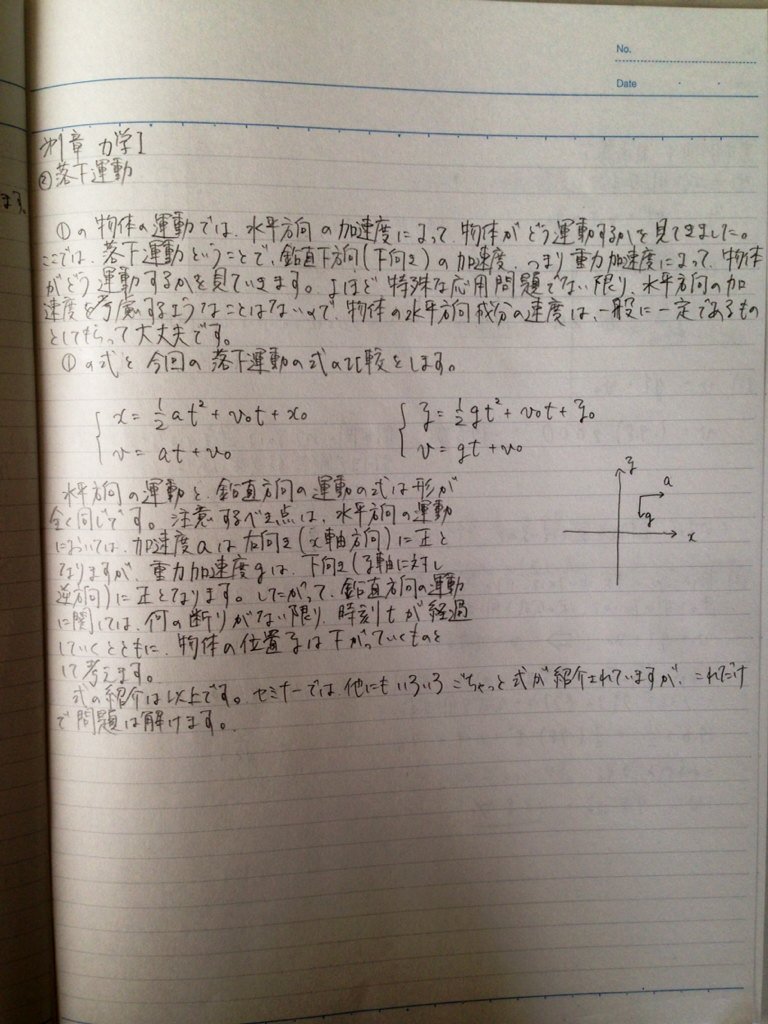 No.
Date
ます。
第1章 力学I
②落下運動
①の物体の運動では、水平方向の加速度によって、物体がどう運動するかを見てきました。
ここでは、落下運動ということで、鉛直下方向(下向き)の加速度、つまり重力加速度によって、物体
がどう運動するかを見ていきます。よほど特殊な応用問題でない限り、水平方向の加
速度を考慮するようなことはないので、物体の水平方向成分の速度は、一般に一定であるもの
としてもらって大丈夫です。
①の式と今回の落下運動の式の比較をします。
x = 1/2 at² + v₀t + x₀
v = at + v₀
z = 1/2 gt² + v₀t + z₀
v = gt + v₀
水平方向の運動と、鉛直方向の運動の式は形が
全く同じです。注意するべき点は、水平方向の運動
においては、加速度aは右向き(x軸方向)に正と
なりますが、重力加速度gは、下向き(z軸に対し
逆方向)に正となります。したがって、鉛直方向の運動
に関しては、何の断りがない限り、時刻tが経過
していくとともに、物体の位置zは下がっていくものと
して考えます。
z
a
g
x
式の紹介は以上です。セミナーでは、他にもいろいろごちゃっと式が紹介されていますが、これだけ
で問題は解けます。